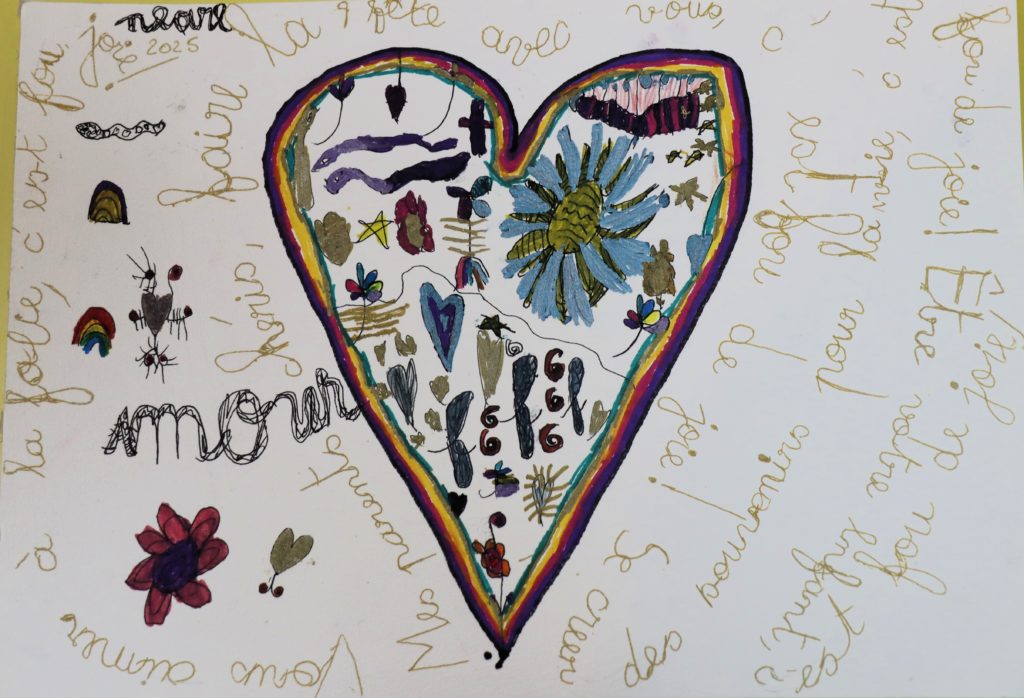 neare
joie 2025
amour
Mes parents chéris,
faire la fête avec vous, c'est fou de joie!
Être votre enfant, c'est fou de joie!
Se créer des souvenirs pour la vie, c'est fou de joie!
Vous aimer à la folie, c'est fou